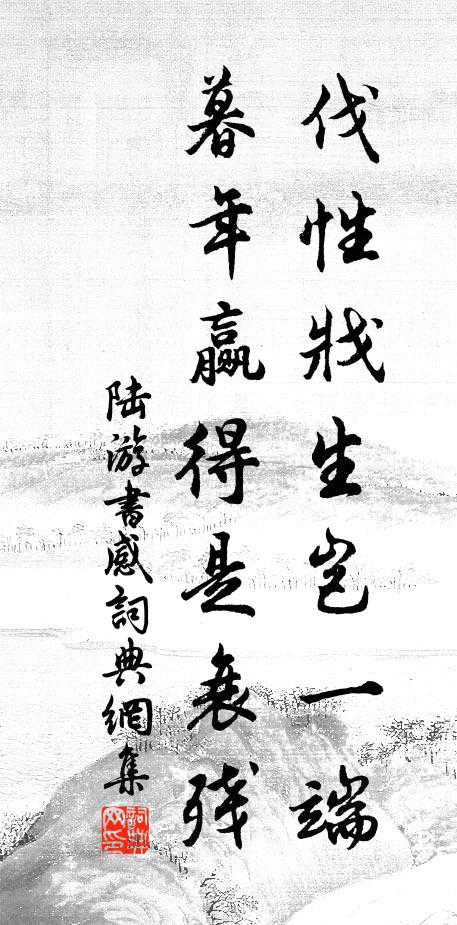 伐性戕生岂一端
暮年赢得是衰残
陆游书感词典網集